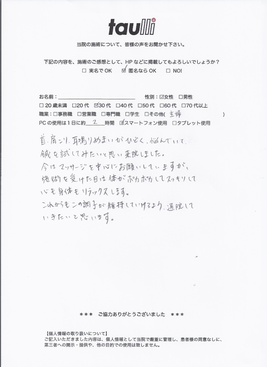 taulli
当院の施術について、皆様の声をお聞かせ下さい。
下記の内容を、施術のご感想として、HPなどに掲載してもよろしいでしょうか?
□実名でOK ☑匿名ならOK □NO!
お名前: 性別:☑女性 □男性
□20歳未満 □20代 ☑30代 □40代 □50代 □60代 □70代以上
職業:□事務職 □営業職 □専門職 □学生 □その他(主婦)
PC使用は1日に約 2 時間 ☑スマートフォン使用 □タブレット使用
首、肩こり、耳鳴りめまいがひどく、悩んでいて
鍼を試してみたいと思い来院しました。
今はマッサージを中心にお願いしていますが、
施術を受けた日は体がポカポカしてスッキリして
心も身体もリラックスします。
これからもこの調子が維持していけるよう、通院して
いきたいと思います。
*** ご協力ありがとうございました ***
【個人情報の取り扱いについて】
ご記入いただきました内容は、個人情報として当院で厳重に管理し、患者様の同意なしに、
第三者への開示・提供や、他の目的での使用は致しません。